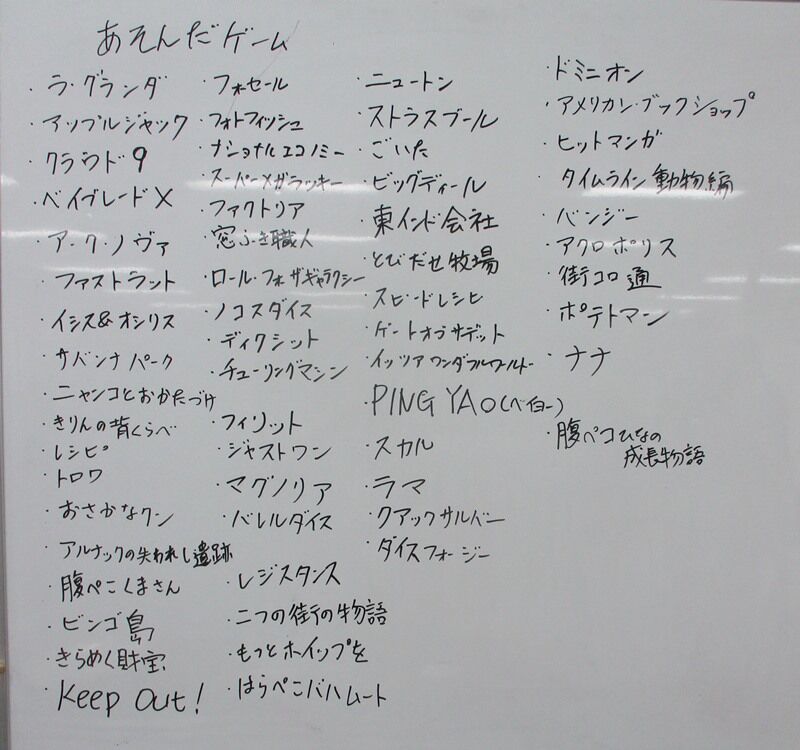 あそんだゲーム
・ラ・グランダ
・アップルジャック
・クラウド9
・ベイブレードX
・アーク・ノヴァ
・ファストラット
・イシス&オシリス
・サバンナパーク
・ニャンコとおかたづけ
・きりんの背くらべ
・レシピ
・トロワ
・おさかなクン
・アルナックの失われし遺跡
・腹ぺこくまさん
・ビンゴ島
・きらめく財宝
・Keep Out!
・フォセール
・フォトフィッシュ
・ナショナルエコノミー
・スーパーメガラッキー
・ファクトリア
・窓ふき職人
・ロール・フォ ザギャラクシー
・ノコスダイス
・ディクシット
・チューリングマシン
・フィリット
・ジャストワン
・マグノリア
・バレルダイス
・レジスタンス
・二つの街の物語
・もっとホイップを
・はらぺこバハムート
・ニュートン
・ストラスブール
・ごいた
・ビッグディール
・東インド会社
・とびだせ牧場
・スピードレシピ
・ゲートオブサデット
・イッツアワンダフルワールド
・PING YAO(ペイヨー)
・スカル
・ラマ
・クアックサルバー
・ダイスフォージー
・ドミニオン
・アメリカン・ブックショップ
・ヒットマンガ
・タイムライン動物編
・バンジー
・アクロポリス
・街コロ通
・ポテトマン
・ナナ
・腹ペコひなの
成長物語